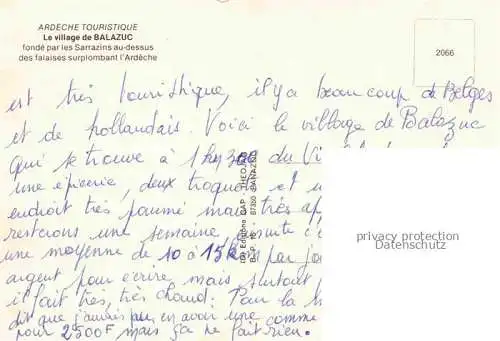 ARDECHE TOURISTIQUE
Le village de BALAZUC
fondé par les Sarrazins au-dessus
des falaises surplombant l'Ardèche
2066
est très touristique, il y a beaucoup de Belges
et de hollandais. Voici le village de Balazuc
qui se trouve à 1 km du
une épicerie, deux et
endroit très paumé mais très
resterons une semaine, ensuite
une moyenne de 10 à 15 km par
argent pour écrire, mais surtout
il fait très, très chaud. Pour la
dit que j'aurais pu en avoir une comme
pour 2500F mais ça ne fait rien.
Editions GAP - THEOJAC
B.P. 16 - PANAZOL
privacy protection
Datenschutz